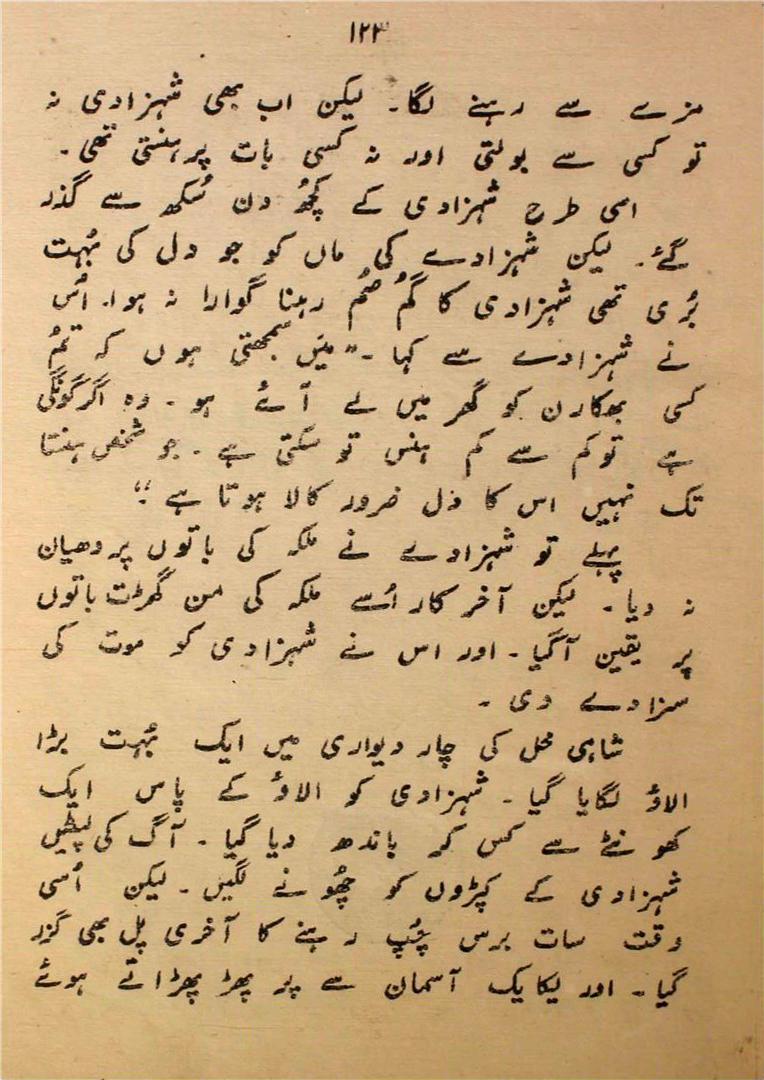 ۱۲۳
مزے سے رہنے لگا۔ لیکن اب بھی شہزادی نہ
تو کسی سے بولتی اور نہ کسی بات پر ہنستی تھی۔
اسی طرح شہزادی کے کچھُ دن سُکھ سے گذر
گئے۔ لیکن شہزادے کی ماں کو جو دل کی بُہت
بُری تھی شہزادی کا گُم صُم رہنا گوارا نہ ہوا۔ اُس
نے شہزادے سے کہا۔ "میَں سمجھتی ہوں کہ تمُ
کسی بھکارن کو گھر میں لے آئے ہو۔ وہ اگر گونگی
ہے تو کم سے کم ہنس تو سکتی ہے۔ جو شخص ہنستا
تک نہیں اس کا دل ضرور کالا ہوتا ہے"
پہلے تو شہزادے نے ملکہ کی باتوں پر دھیان
نہ دیا۔ لیکن آخر کار اُسے ملکہ کی من گھڑت باتوں
پر یقین آگیا۔ اور اس نے شہزادی کو موت کی
سزا دے دی۔
شاہی محل کی چار دیواری میں ایک بُہت بڑا
الاؤ لگایا گیا۔ شہزادی کو الاؤ کے پاس ایک
کھونٹے سے کس کر باندھ دیا گیا۔ آگ کی لپٹیں
شہزادی کے کپڑوں کو چھُونے لگیں۔ لیکن اُسی
وقت سات برس چُپ رہنے کا آخری پل بھی گزر
گیا۔ اور یکایک آسمان سے پر پھڑ پھڑاتے ہوئے